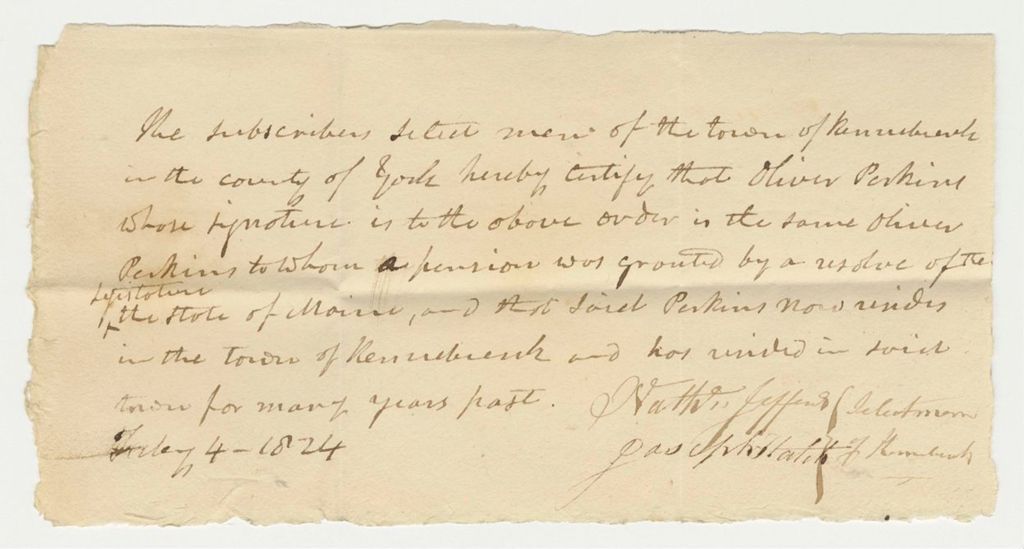 The subscribers select men of the town of Kennebunk
in the county of York hereby certify that Oliver Perkins
whose signature is to the above order is the same Oliver
Perkins to whom a pension was granted by a resolve of the
Legislature
the state of Maine, and that said Perkins now resides
in the town of Kennebunk and has resided in said
town for many years past.
Nathl Jefferds Selectmen
July 4 - 1824
of Kennebunk